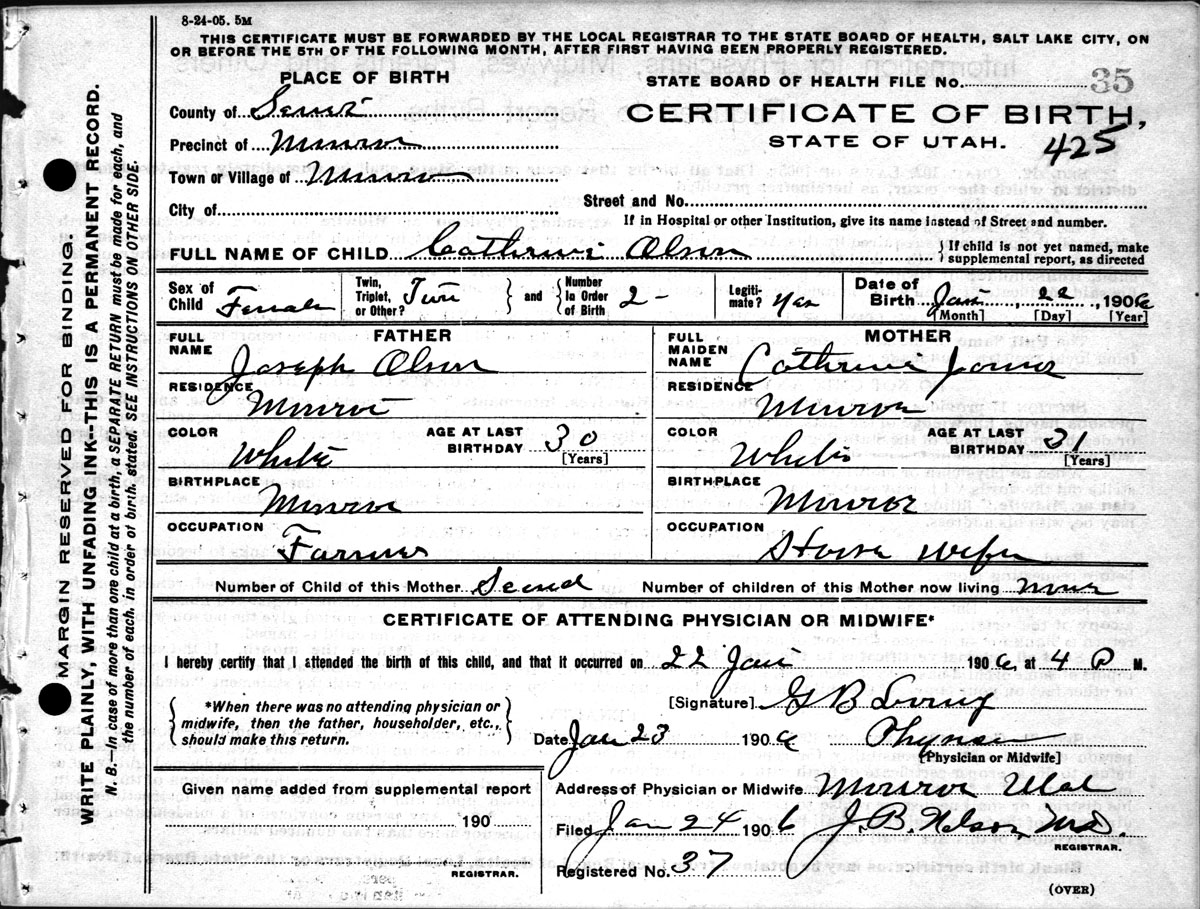 8-24-05. 5M
THIS CERTIFICATE MUST BE FORWARDED BY THE LOCAL REGISTRAR TO THE STATE BOARD OF HEALTH, SALT LAKE CITY, ON
OR BEFORE THE 5TH OF THE FOLLOWING MONTH, AFTER FIRST HAVING BEEN PROPERLY REGISTERED.
PLACE OF BIRTH
STATE BOARD OF HEALTH FILE No. 35
County of Sevier
CERTIFICATE OF BIRTH,
Precinct of Monroe
STATE OF UTAH. 425
Town or Village of Monroe
City of
Street and No.
If in Hospital or other Institution, give its name instead of Street and number.
FULL NAME OF CHILD Cathrine Olson { If child is not yet named, make supplemental report, as directed
Sex of Child Female Twin, Triplet, or Other? Twin } and { Number in Order of Birth 2 - Legiti-mate? Yes Date of Birth Jan, 22, 1906
[Month] [Day] [Year]
FATHER MOTHER
FULL NAME Joseph Olson FULL MAIDEN NAME Cathrine
RESIDENCE Monroe RESIDENCE Monroe
COLOR White AGE AT LAST BIRTHDAY 30 [Years] COLOR White AGE AT LAST BIRTHDAY 31 [Years]
BIRTHPLACE Monroe BIRTHPLACE Monroe
OCCUPATION Farmer OCCUPATION House Wife
Number of Child of this Mother Second Number of children of this Mother now living
CERTIFICATE OF ATTENDING PHYSICIAN OR MIDWIFE*
I hereby certify that I attended the birth of this child, and that it occurred on 22 Jan 1906 at 4 P M.
{ *When there was no attending physician or midwife, then the father, householder, etc., should make this return. }
[Signature] G B
Date Jan 23 1906
[Physician or Midwife]
Given name added from supplemental report
190
REGISTRAR.
Address of Physician or Midwife Monroe Utah
Filed Jan 24 1906 J. B. Nelson, M.D.
REGISTRAR.
Registered No. 37
(OVER)
MARGIN RESERVED FOR BINDING.
WRITE PLAINLY, WITH UNFADING INK--THIS IS A PERMANENT RECORD.
N. B.--In case of more than one child at a birth, a SEPARATE RETURN must be made for each, and
the number of each, in order of birth, stated. SEE INSTRUCTIONS ON OTHER SIDE.